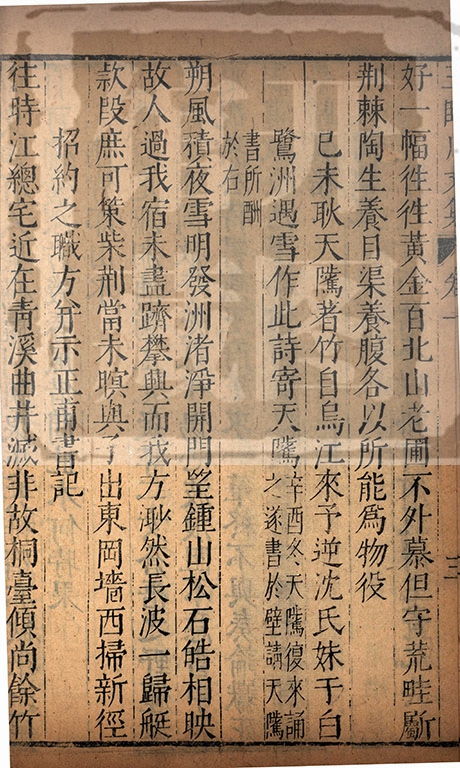 好一幅徃徃黃金百北山老圃不外慕但守荒畦斸
荆棘陶生養目渠養腹各以所能爲物役
巳未耿天隲著竹自烏江來予逆沈氏妹于白
鷺洲遇雪作此詩寄天隲辛酉冬天隲復來誦
之遂書於壁請天隲
書所酬
於右
朔風積夜雪明發洲渚淨開門望鍾山松石皓相映
故人過我宿未盡躋攀興而我方渺然長波一歸艇
款段庶可策柴荆當未暝與子出東岡墻西掃新徑
招約之職方并示正甫書記
往時江總宅近在青溪曲井滅非故桐臺傾尚餘竹